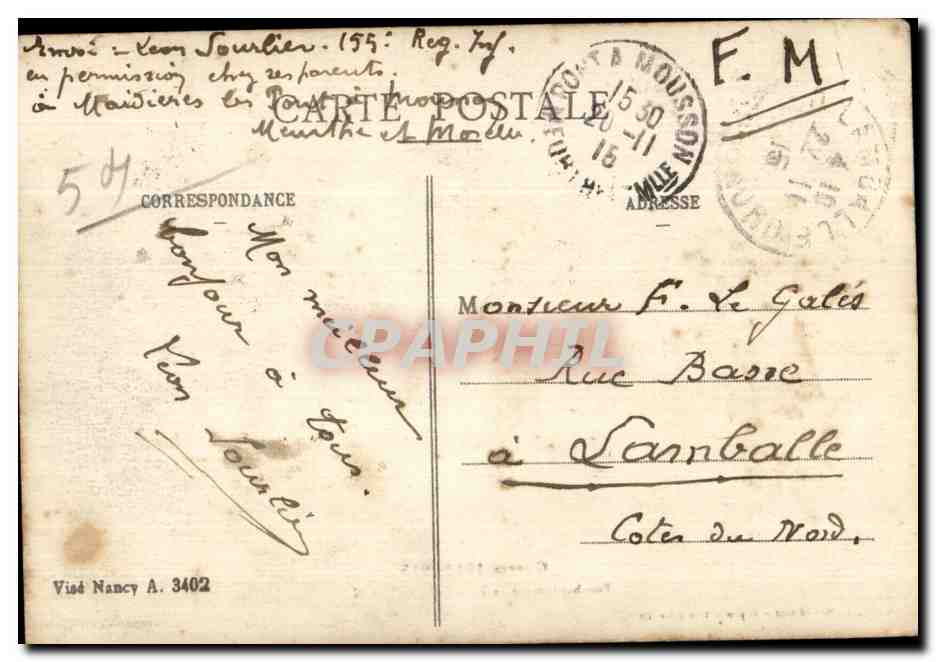 Envoi = Léon Sourlier. 155e Reg. Inf.
en permission chez ses parents.
à Maidières les Pont à Mousson
Meurthe et Moselle
CARTE POSTALE
PONT A MOUSSON
15 30
20 - 11
15
MEURTHE
MLLE
F. M
LAMBALLE
DU NORD
54
CORRESPONDANCE
ADRESSE
Mon meilleur
bonjour à tous.
Léon Sourlier
Monsieur F. Le Galès
Rue Basse
à Lamballe
Cotes du Nord.
CPAPHIL
Visé Nancy A. 3402